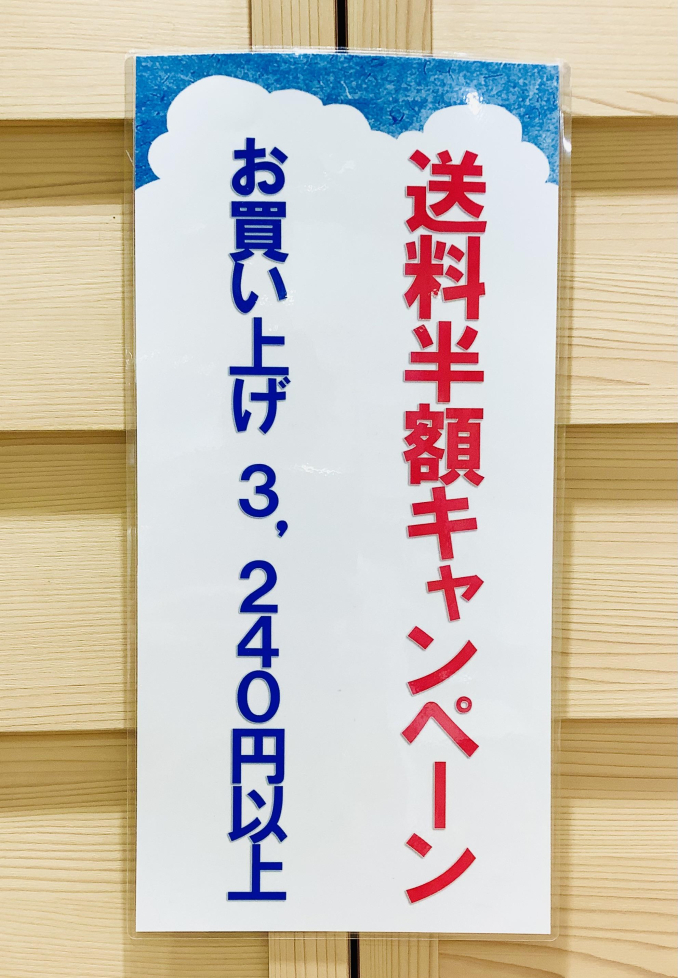 送料半額キャンペーン
お買い上げ 3,240円以上